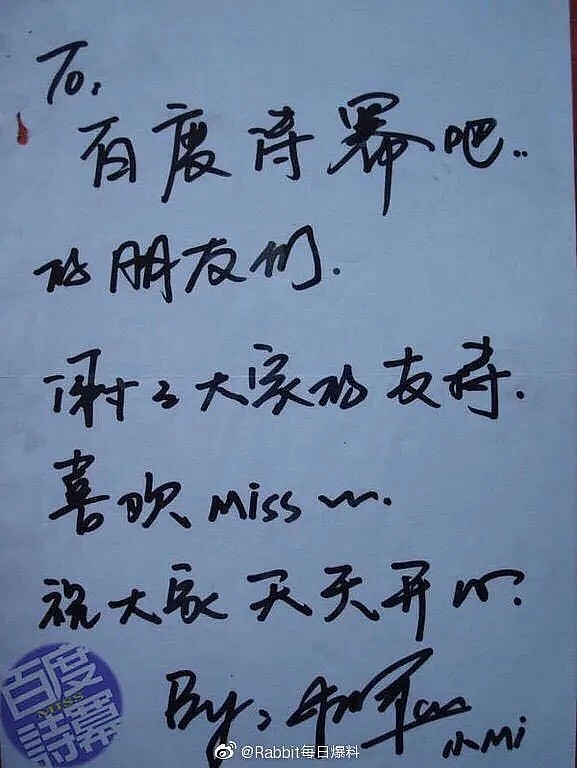 To,
百度诗幂吧..
的朋友们.
谢谢大家的支持.
喜欢 Miss ~.
祝大家天天开心.
By:
小Mi
百度
MISS
詩幂
@Rabbit每日爆料